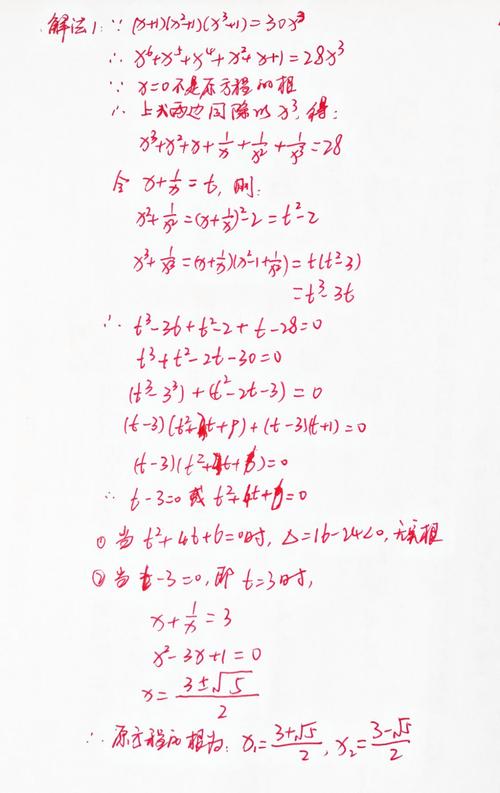 解法1:∵ (x+1)(x²+1)(x³+1)=30x³
∴ x⁶+x⁵+x⁴+x²+x+1=28x³
∵ x=0不是原方程的根
∴ 上式两边同除以x³,得:
x³+x²+x+1/x+1/x²+1/x³=28
令 x+1/x=t, 则:
x²+1/x²=(x+1/x)²-2=t²-2
x³+1/x³=(x+1/x)(x²-1+1/x²)=t(t²-3)
=t³-3t
∴ t³-3t+t²-2+t-28=0
t³+t²-2t-30=0
(t³-3³)+(t²-2t-3)=0
(t-3)(t²+t+9)+(t-3)(t+1)=0
(t-3)(t²+4t+)=0
∴ t-3=0 或 t²+4t+=0
① 当 t²+4t+6=0时, Δ=16-24<0, 无实根
② 当 t-3=0, 即 t=3时,
x+1/x=3
x²-3x+1=0
x=(3±√5)/2
∴ 原方程的根为: x₁=(3+√5)/2, x₂=(3-√5)/2